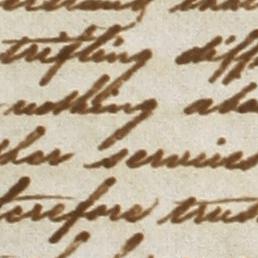 trifling diff
nothing abo
her services
therefore trus